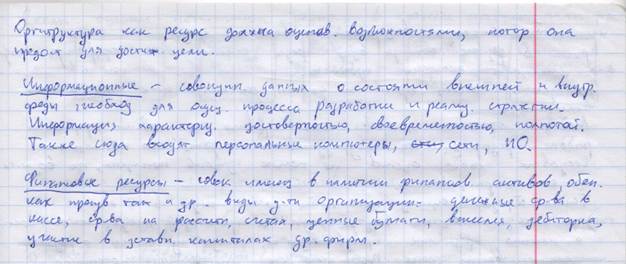 Оргструктура как ресурс должна оценив. возможностями, котор она
предост для достиж. цели.
Информационные – совокупн. данных о состоянии внешней и внутр.
среды необход для осущ. процесса разработки и реализ. стратегии.
Информация характериз. достоверностью, своевременностью, полнотой.
Также сюда входят персональные компьютеры, сети, ПО.
Финансовые ресурсы – совок имеющ в наличии финансов. активов, обесп.
как произв так и др. виды д-ти организации: денежные ср-ва в
кассе, ср-ва на рассчетн, счетах, ценные бумаги, векселя, дебиторка,
участие в уставн. капиталах др. фирм.